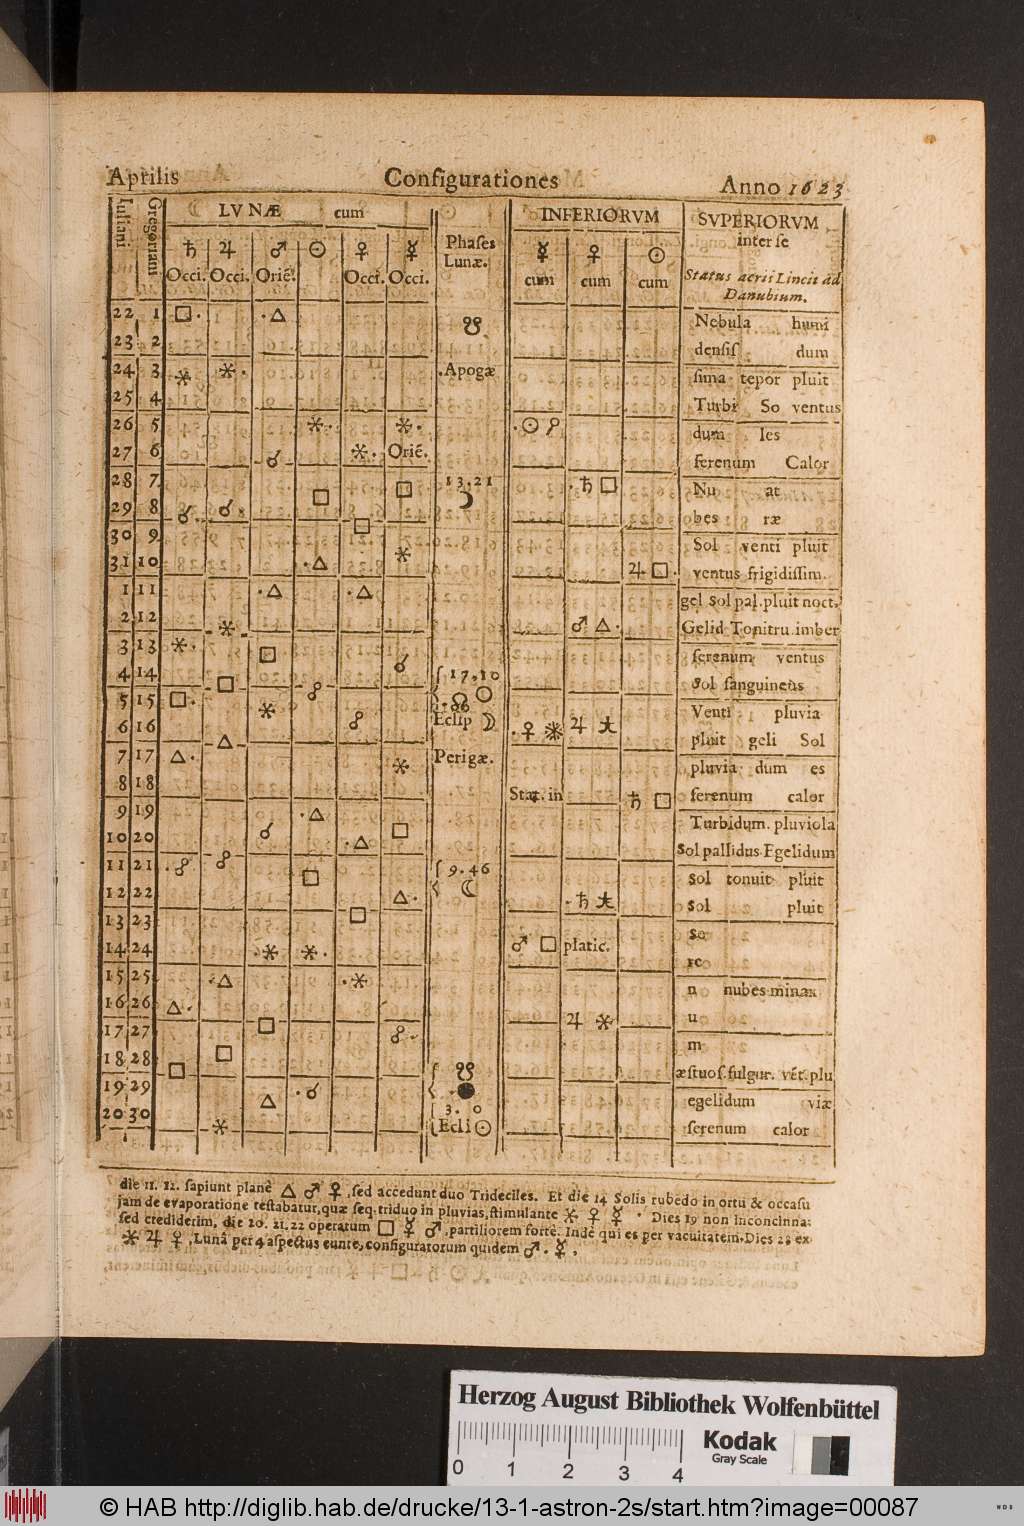 Aprilis Configurationes Anno 1623
Iuliani Gregoriani LVNÆ cum Phases Lunæ. INFERIORVM SVPERIORVM
inter se
♄ ♃ ♂ ☉ ♀ ☿ ☿ ♀ ☉
Occi. Occi. Oriẽ. Occi. Occi. cum cum cum Status aeris Lincii ad
Danubium.
22 1 □. .△ ☋ Nebula humi
23 2 densis dum
24 3 ⚹ ⚹. .Apogæ sima tepor pluit
25 4 Turbi So ventus
26 5 ⚹. ⚹. .☉☍ dum les
27 6 ☌ ⚹. Oriẽ. serenum Calor
28 7 □ □ 13.21 .♄□ Nu at
29 8 ☌. ☌. ☽ bes ræ
30 9 □ Sol venti pluit
31 10 .△ ⚹ ♃□. ventus frigidissim.
1 11 .△ .△ gel Sol pal.pluit noct.
2 12 ⚹ ♂△. Gelid Tonitru imber
3 13 ⚹. □ ☌ serenum ventus
4 14 □ 17.10 Sol sanguineus
5 15 □. ⚹ ☍ ☊☉ Venti pluvia
6 16 ☍ Eclip ☽ .♀ ♃ pluit geli Sol
7 17 △. △ ⚹ Perigæ. pluvia dum es
8 18 Stat. in ♄□ serenum calor
9 19 .△ Turbidum. pluviola
10 20 ☌ .△ □ Sol pallidus Egelidum
11 21 .☍ ☍ □ 9.46 Sol tonuit pluit
12 22 △. ☾ .♄ Sol pluit
13 23 □ So
14 24 .⚹ ⚹. ♂□ platic. re
15 25 .△ .⚹ n nubes minax
16 26 △. ♃⚹ u
17 27 □ ☍. m
18 28 □ □ ☋ æstuos.fulgur. vẽt.plu
19 29 △ .☌ ● egelidum viæ
20 30 ⚹ 3. 0 serenum calor
Ecli☉
die 11. 12. sapiunt planè △ ♂ ♀, sed accedunt duo Trideciles. Et die 14 Solis rubedo in ortu & occasu
jam de evaporatione testabatur, quæ seq. triduo in pluvias, stimulante ⚹ ♀ ☿ . Dies 19 non inconcinna:
sed crediderim, die 20. 21. 22 operatum □ ☿ ♂, partiliorem fortè. Indè qui es per vacuitatem. Dies 28 ex
⚹ ♃ ♀, Lunâ per 4 aspectus eunte, configuratorum quidem ♂. ☿.
Herzog August Bibliothek Wolfenbüttel
0 1 2 3 4
Kodak
Gray Scale
© HAB http://diglib.hab.de/drucke/13-1-astron-2s/start.htm?image=00087
WDB